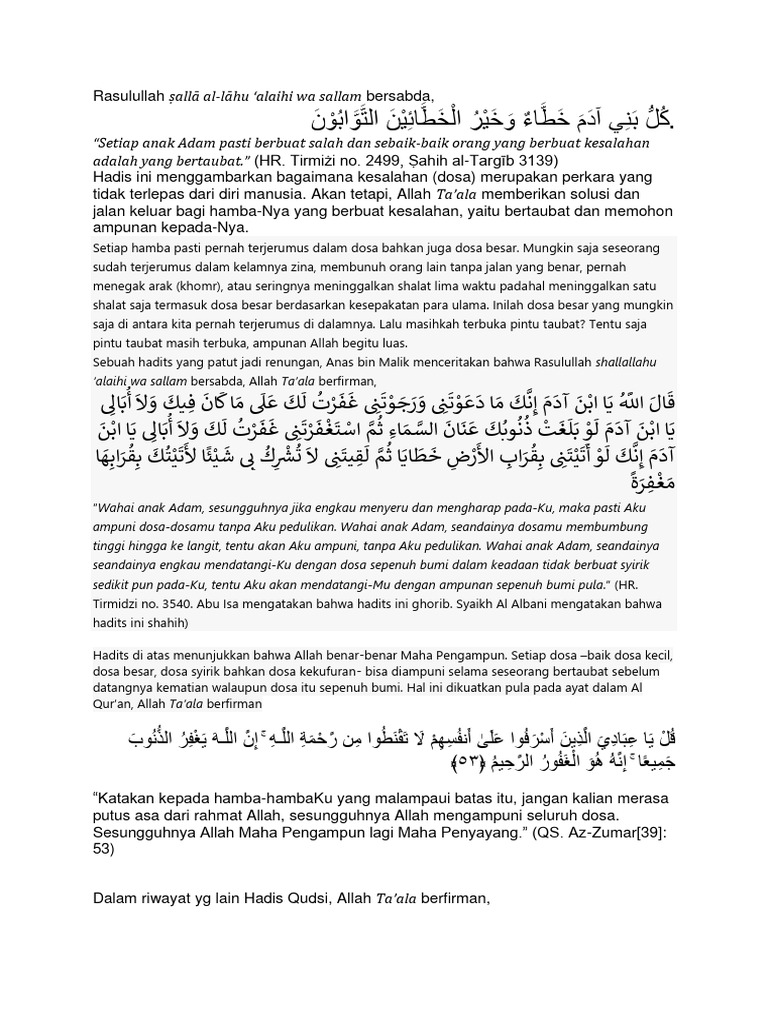 Rasulullah ṣallā al-lāhu ‘alaihi wa sallam bersabda,
كُلُّ بَنِي آدَمَ خَطَّاءٌ وَخَيْرُ الْخَطَّائِيْنَ التَّوَّابُوْنَ.
“Setiap anak Adam pasti berbuat salah dan sebaik-baik orang yang berbuat kesalahan
adalah yang bertaubat.” (HR. Tirmiżi no. 2499, Ṣahih al-Targīb 3139)
Hadis ini menggambarkan bagaimana kesalahan (dosa) merupakan perkara yang
tidak terlepas dari diri manusia. Akan tetapi, Allah Ta’ala memberikan solusi dan
jalan keluar bagi hamba-Nya yang berbuat kesalahan, yaitu bertaubat dan memohon
ampunan kepada-Nya.
Setiap hamba pasti pernah terjerumus dalam dosa bahkan juga dosa besar. Mungkin saja seseorang
sudah terjerumus dalam kelamnya zina, membunuh orang lain tanpa jalan yang benar, pernah
menegak arak (khomr), atau seringnya meninggalkan shalat lima waktu padahal meninggalkan satu
shalat saja termasuk dosa besar berdasarkan kesepakatan para ulama. Inilah dosa besar yang mungkin
saja di antara kita pernah terjerumus di dalamnya. Lalu masihkah terbuka pintu taubat? Tentu saja
pintu taubat masih terbuka, ampunan Allah begitu luas.
Sebuah hadits yang patut jadi renungan, Anas bin Malik menceritakan bahwa Rasulullah shallallahu
‘alaihi wa sallam bersabda, Allah Ta’ala berfirman,
قَالَ اللَّهُ يَا ابْنَ آدَمَ إِنَّكَ مَا دَعَوْتَنِى وَرَجَوْتَنِى غَفَرْتُ لَكَ عَلَى مَا كَانَ فِيكَ وَلاَ أُبَالِى
يَا ابْنَ آدَمَ لَوْ بَلَغَتْ ذُنُوبُكَ عَنَانَ السَّمَاءِ ثُمَّ اسْتَغْفَرْتَنِى غَفَرْتُ لَكَ وَلاَ أُبَالِى يَا ابْنَ
آدَمَ إِنَّكَ لَوْ أَتَيْتَنِى بِقُرَابِ الأَرْضِ خَطَايَا ثُمَّ لَقِيتَنِى لاَ تُشْرِكُ بِى شَيْئًا لأَتَيْتُكَ بِقُرَابِهَا
مَغْفِرَةً
”Wahai anak Adam, sesungguhnya jika engkau menyeru dan mengharap pada-Ku, maka pasti Aku
ampuni dosa-dosamu tanpa Aku pedulikan. Wahai anak Adam, seandainya dosamu membumbung
tinggi hingga ke langit, tentu akan Aku ampuni, tanpa Aku pedulikan. Wahai anak Adam, seandainya
seandainya engkau mendatangi-Ku dengan dosa sepenuh bumi dalam keadaan tidak berbuat syirik
sedikit pun pada-Ku, tentu Aku akan mendatangi-Mu dengan ampunan sepenuh bumi pula.” (HR.
Tirmidzi no. 3540. Abu Isa mengatakan bahwa hadits ini ghorib. Syaikh Al Albani mengatakan bahwa
hadits ini shahih)
Hadits di atas menunjukkan bahwa Allah benar-benar Maha Pengampun. Setiap dosa –baik dosa kecil,
dosa besar, dosa syirik bahkan dosa kekufuran- bisa diampuni selama seseorang bertaubat sebelum
datangnya kematian walaupun dosa itu sepenuh bumi. Hal ini dikuatkan pula pada ayat dalam Al
Qur’an, Allah Ta’ala berfirman
قُلْ يَا عِبَادِيَ الَّذِينَ أَسْرَفُوا عَلَىٰ أَنفُسِهِمْ لَا تَقْنَطُوا مِن رَّحْمَةِ اللَّـهِ ۚ إِنَّ اللَّـهَ يَغْفِرُ الذُّنُوبَ
جَمِيعًا ۚ إِنَّهُ هُوَ الْغَفُورُ الرَّحِيمُ ﴿٥٣﴾
“Katakan kepada hamba-hambaKu yang malampaui batas itu, jangan kalian merasa
putus asa dari rahmat Allah, sesungguhnya Allah mengampuni seluruh dosa.
Sesungguhnya Allah Maha Pengampun lagi Maha Penyayang.” (QS. Az-Zumar[39]:
53)
Dalam riwayat yg lain Hadis Qudsi, Allah Ta’ala berfirman,